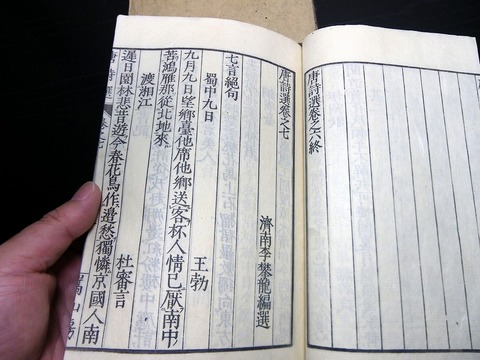 唐詩選卷之六終
唐詩選卷之七
濟南李攀龍編選
七言絕句
蜀中九日
王勃
九月九日望鄉臺他席他鄉送客杯人情已厭南中
苦鴻雁那從北地來
渡湘江
杜審言
遲日園林悲昔遊今春花鳥作邊愁獨憐京國人南
唐詩選